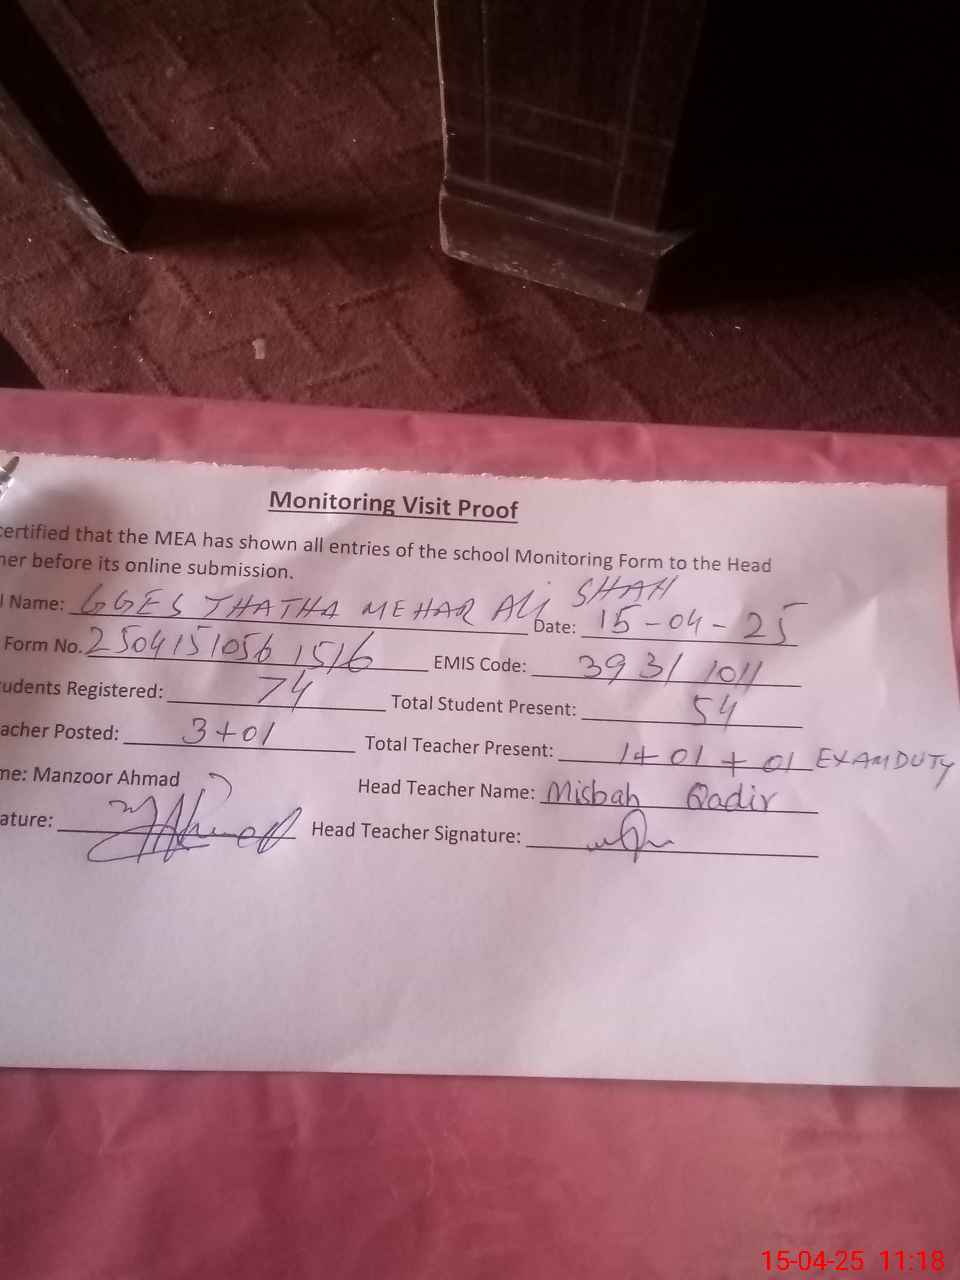 Monitoring Visit Proof
certified that the MEA has shown all entries of the school Monitoring Form to the Head
her before its online submission.
l Name: GGES THATHA MEHAR Ali SHAH Date: 15-04-25
Form No. 2504151056 1516 EMIS Code: 393/1011
udents Registered: 74 Total Student Present: 54
acher Posted: 3+01 Total Teacher Present: 1+01+01 EXAM DUTY
me: Manzoor Ahmad Head Teacher Name: Misbah Qadir
ature: Head Teacher Signature:
15-04-25 11:18